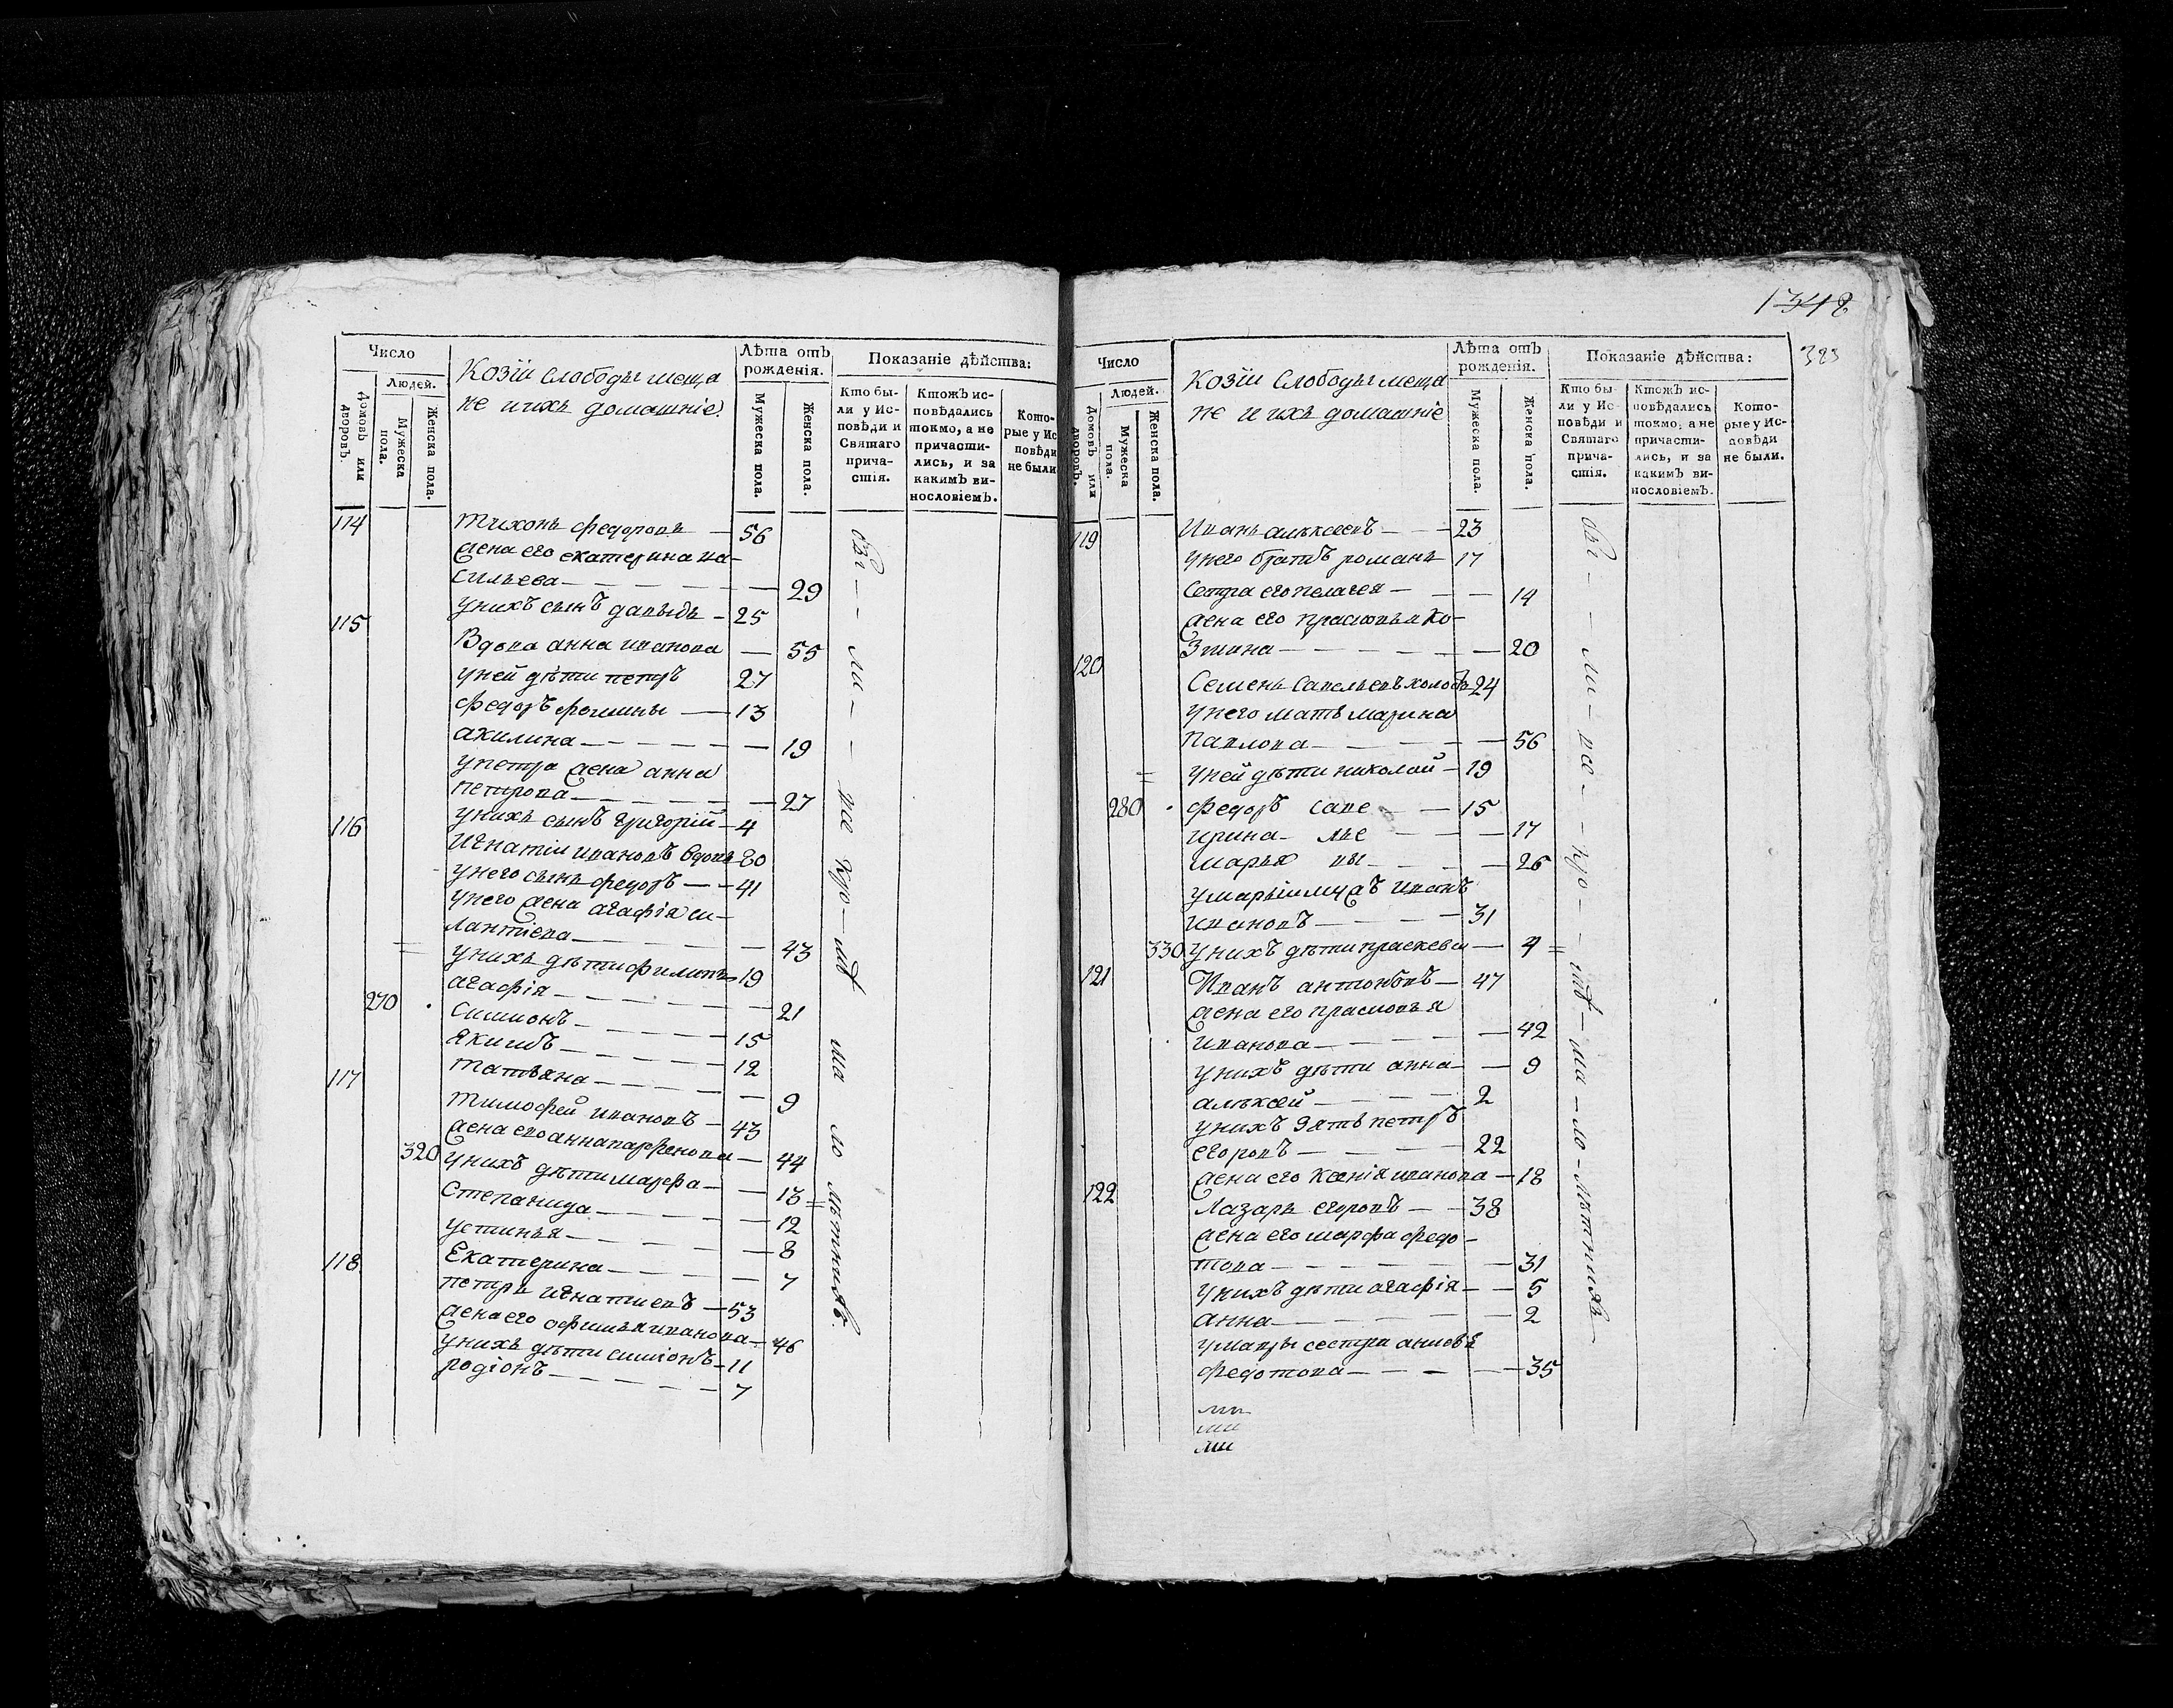 Число
Людей.
Домовъ или дворовъ.
Мужеска пола.
Женска пола.
Козїи слободы меща
не и ихъ домашнїе.
Лѣта отъ рожденїя.
Мужеска пола.
Женска пола.
Показанїе дѣйства:
Кто бы-
ли у Ис-
повѣди и
Святаго
прича-
стїя.
Ктожъ ис-
повѣдались
токмо, а не
причасти-
лись, и за
какимъ ви-
нословїемъ.
Кото-
рые у Ис
повѣди
не были
114 Тихонъ федоровъ — 56
жена его екатерина ва-
сильева — 29
у нихъ сынъ давыдъ — 25
115 Вдова анна иванова — 55
у ней дѣти петръ 27
федоръ фомины — 13
акилина — 19
у петра жена анна
петрова — 27
у нихъ сынъ григорїй — 4
116 Игнатїи ивановъ вдовъ 80
у него сынъ федоръ — 41
у него жена агафїя си-
лантїева — 43
у нихъ дѣти филипъ 19
агафїя — 21
270 симионъ — 15
Якимъ — 12
татьяна — 9
117 тимофей ивановъ — 43
жена его анна парфенова — 44
320 у нихъ дѣти марфа — 13
степанида — 12
устинья — 8
Екатерина — 7
118 петръ игнатиевъ — 53
жена его офимья иванова — 46
у нихъ дѣти симионъ — 11
родїонъ — 7
бы — ли — все кро — мѣ ма ло лѣтнихъ
1342
383
Число
Людей.
Домовъ или дворовъ.
Мужеска пола.
Женска пола.
Козїи слободы меща
не и ихъ домашнїе
Лѣта отъ рожденїя.
Мужеска пола.
Женска пола.
Показанїе дѣйства:
Кто бы-
ли у Ис-
повѣди и
Святаго
прича-
стїя.
Ктожъ ис-
повѣдались
токмо, а не
причасти-
лись, и за
какимъ ви-
нословїемъ.
Кото-
рые у Ис-
повѣди
не были.
119 Иванъ алѣксеевъ — 23
у него братъ романъ 17
сестра его пелагея — 14
жена его прасковья ко-
змина — 20
120 Семенъ савельевъ холостъ 24
у него мать марина
павлова — 56
у ней дѣти николай — 19
280 федоръ саве — 15
ирина — лье — 17
марья вы — 26
у марьи мужъ иванъ
ивановъ — 31
330 у нихъ дѣти праскевья — 4
121 Иванъ антоновъ — 47
жена его прасковья
иванова — 42
у нихъ дѣти анна — 9
алѣксей — 2
у нихъ зять петръ
егоровъ — 22
жена его ксенїя иванова — 18
122 Лазарь егоровъ — 38
жена его марфа федо-
това — 31
у нихъ дѣти агафїя — 5
анна — 2
у марфы сестра
федотова — 35
бы — ли — все — кро — мѣ — ма — ло — лѣтнихъ